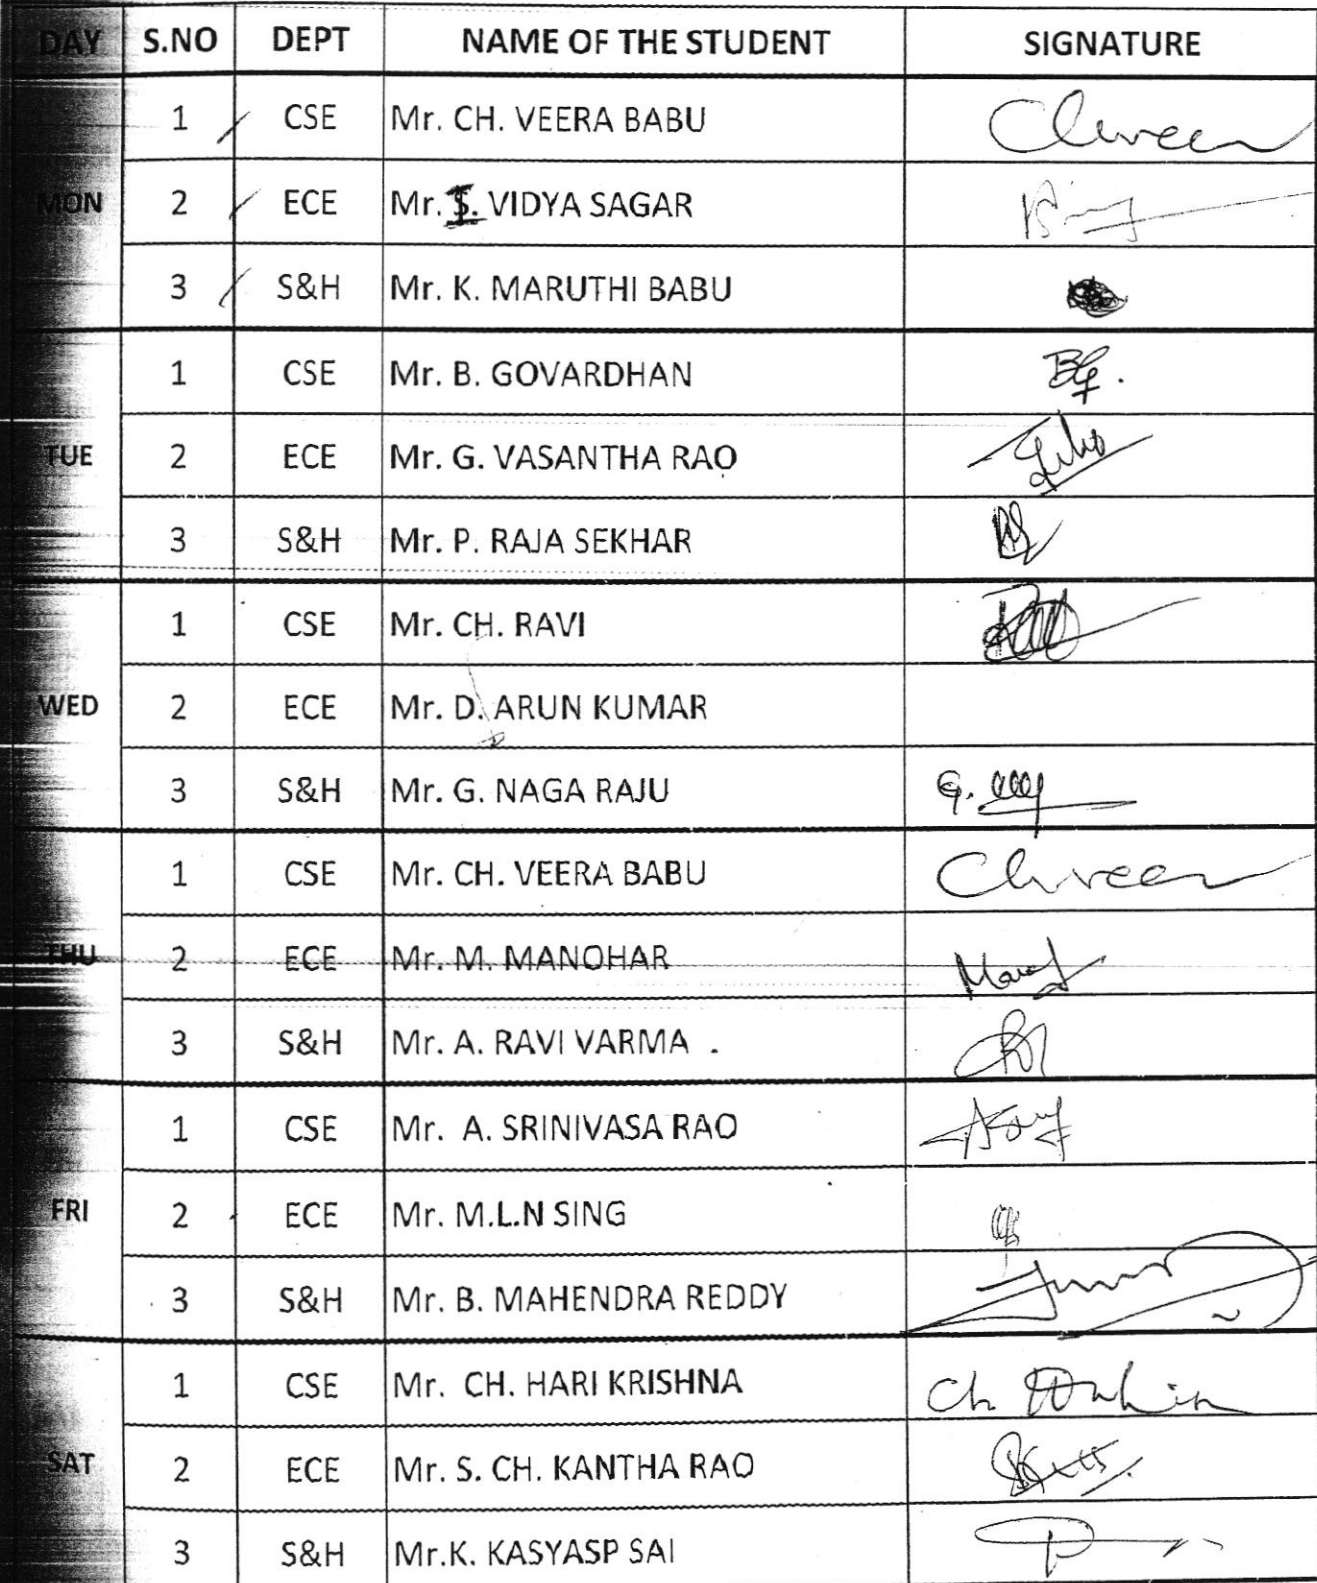 DAY S.NO DEPT NAME OF THE STUDENT SIGNATURE
1 CSE Mr. CH. VEERA BABU
MON 2 ECE Mr. VIDYA SAGAR
3 S&H Mr. K. MARUTHI BABU
1 CSE Mr. B. GOVARDHAN
TUE 2 ECE Mr. G. VASANTHA RAO
3 S&H Mr. P. RAJA SEKHAR
1 CSE Mr. CH. RAVI
WED 2 ECE Mr. D. ARUN KUMAR
3 S&H Mr. G. NAGA RAJU G.
1 CSE Mr. CH. VEERA BABU
THU 2 ECE Mr. M. MANOHAR
3 S&H Mr. A. RAVI VARMA .
1 CSE Mr. A. SRINIVASA RAO
FRI 2 ECE Mr. M.L.N SING
3 S&H Mr. B. MAHENDRA REDDY
1 CSE Mr. CH. HARI KRISHNA Ch
SAT 2 ECE Mr. S. CH. KANTHA RAO
3 S&H Mr.K. KASYASP SAI